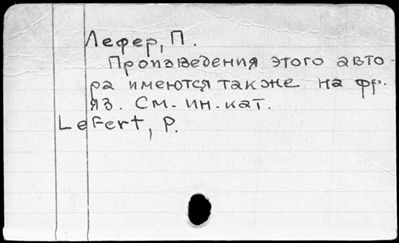 Лефер, П.
Произведения этого авто-
ра имеются также на фр.
яз. См. ин. кат.
Lefert, P.